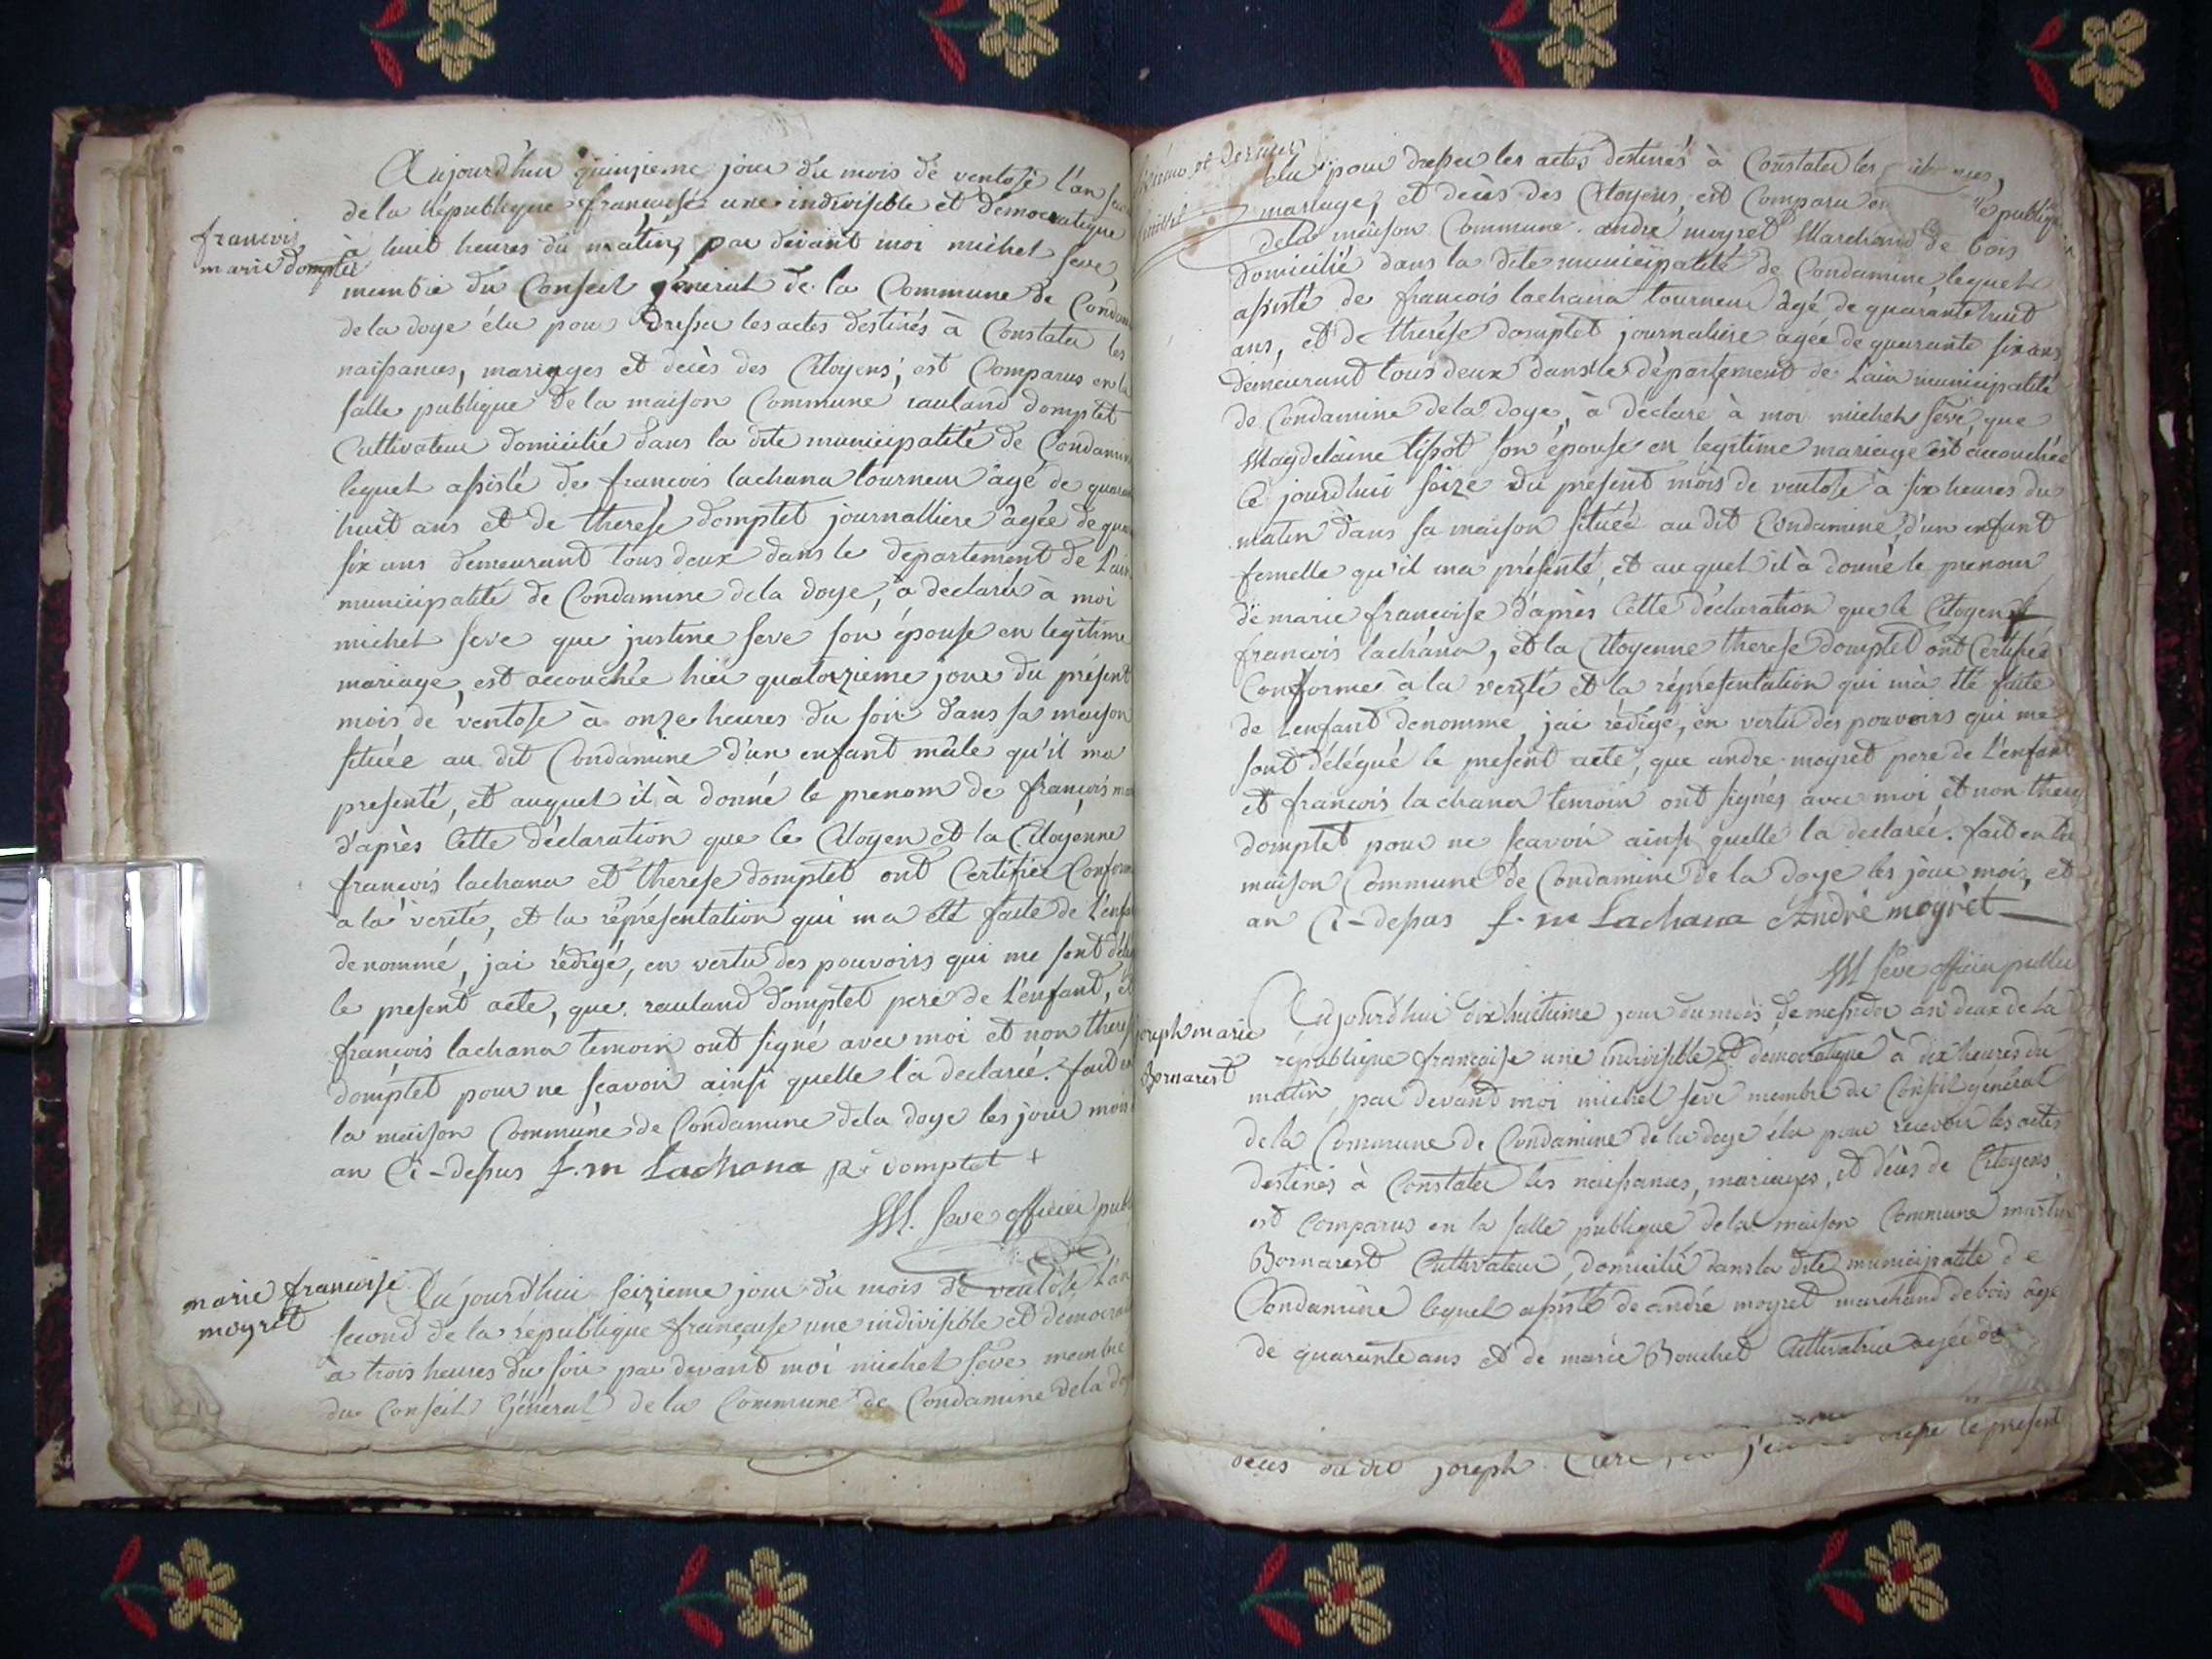 francois
marie domptet
Aujourd'hui quinzieme jour du mois de ventose l'an
de la république francaise une indivisible et democratique
à huit heures du matin, par devant moi michel seve
membre du Conseil général de la Commune de
de la doye élu pour dresser les actes destinés à Constater les
naissances, mariages et decès des Citoyens, est Comparus en la
salle publique de la maison Commune rauland domptet
Cultivateur domicilié dans la dite municipalité de Condamine
lequel assisté de francois lachana tourneur âgé de
huit ans et de therese domptet journalliere âgée de
six ans demeurant tous deux dans le departement de L'ain
municipalité de Condamine de la doye, a declaré à moi
michel seve que justine seve son épouse en legitime
mariage, est accouchée hier quatorzieme jour du présent
mois de ventose à onze heures du soir dans sa maison
située au dit Condamine d'un enfant mâle qu'il ma
presenté, et auquel il à donné le prenom de francois
d'après Cette déclaration que le Citoyen et la Citoyenne
francois lachana et therese domptet ont Certifiée
a la verité, et la réprésentation qui ma été faite de
denommé, jai rédigé, en vertu des pouvoirs qui me sont
le present acte, que rauland domptet pere de l'enfant, et
francois lachana temoin ont signé avec moi et non
domptet pour ne scavoir ainsi quelle la declarée. fait
la maison Commune de Condamine de la doye les jour mois
an Ci-dessus f. m Lachana domptet +
M. Seve officier
marie francoise
moyret
Aujourd'hui seizieme jour du mois de ventose L'an
second de la république francaise une indivisible et
à trois heures du soir par devant moi michel seve membre
du Conseil Général de la Commune de Condamine de la
et dernier
élu pour dresser les actes destinés à Constater les
mariage, et decès des Citoyens, est Comparu
publique
de la maison Commune andré moyret Marchand de bois
domicilié dans la dite municipalité de Condamine lequel
assisté de francois lachana tourneur âgé de quarante huit
ans, et de therése domptet journaliere agée de quarante six ans
demeurant tous deux dans le département de Lain municipalité
de Condamine de la doye, à declaré à moi michel seve, que
Magdelaine tissot son épouse en legitime mariage est accouchée
Ce jourd'hui seize du present mois de ventose à six heures du
matin dans sa maison située au dit Condamine d'un enfant
femelle qu'il ma présenté, et auquel il à donné le prenom
de marie francoise d'après Cette déclaration que le Citoyen
francois lachana, et la Citoyenne therese domptet ont Certifiée
Conforme à la verité et la réprésentation qui mà été faite
de Lenfant denommé, jai rédigé, en vertu des pouvoirs qui me
sont délégué le present acte, que andre moyret pere de L'enfant
et francois lachana temoin ont signés avec moi et non
domptet pour ne scavoir ainsi quelle la declarée. fait en la
maison Commune de Condamine de la doye les jour mois, et
an Ci-dessus f. m Lachana André moyrèt
M Seve officier public
joseph marie
Bornarest
Aujourd'hui dix huitieme jour du mois de messidor an deux de la
république francaise une indivisible et democratique à dix heures du
matin, par devant moi michel seve membre du Conseil général
de la Commune de Condamine de la doye élu pour recevoir les actes
destinés à Constater les naissances, mariages, et décès de Citoyens
est Comparus en la salle publique de la maison Commune martin
Bornarest Cultivateur, domicilié dans la dite municipalité de
Condamine lequel assisté de andré moyret marchand de bois âgé
de quarante ans et de marie Bouchet Cultivatrice agée de
décès du dit joseph le present